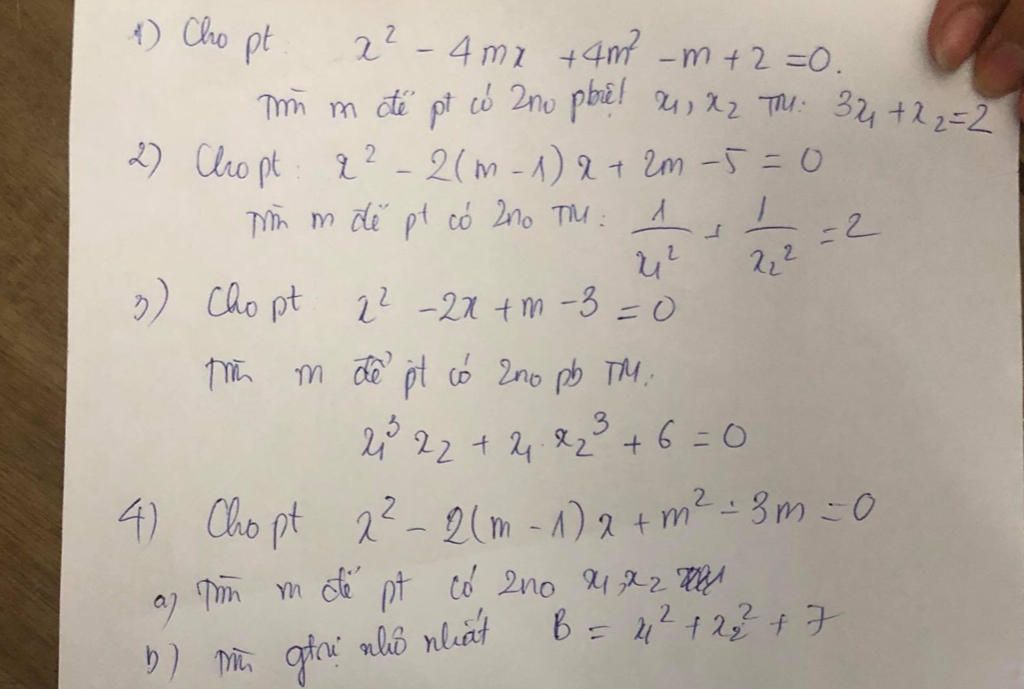 1) Cho pt x² - 4mx + 4m² - m + 2 = 0.
Tìm m để pt có 2no pbiệt x₁, x₂ TM: 3x₁ + x₂ = 2
2) Cho pt: x² - 2(m - 1)x + 2m - 5 = 0
Tìm m để pt có 2no TM: 1/x₁² + 1/x₂² = 2
3) Cho pt x² - 2x + m - 3 = 0
Tìm m để pt có 2no pb TM:
x₁³ x₂ + x₁.x₂³ + 6 = 0
4) Cho pt x² - 2(m - 1)x + m² - 3m = 0
a) Tìm m để pt có 2no x₁, x₂
b) Tìm gtrị nhỏ nhất B = x₁² + x₂² + 7